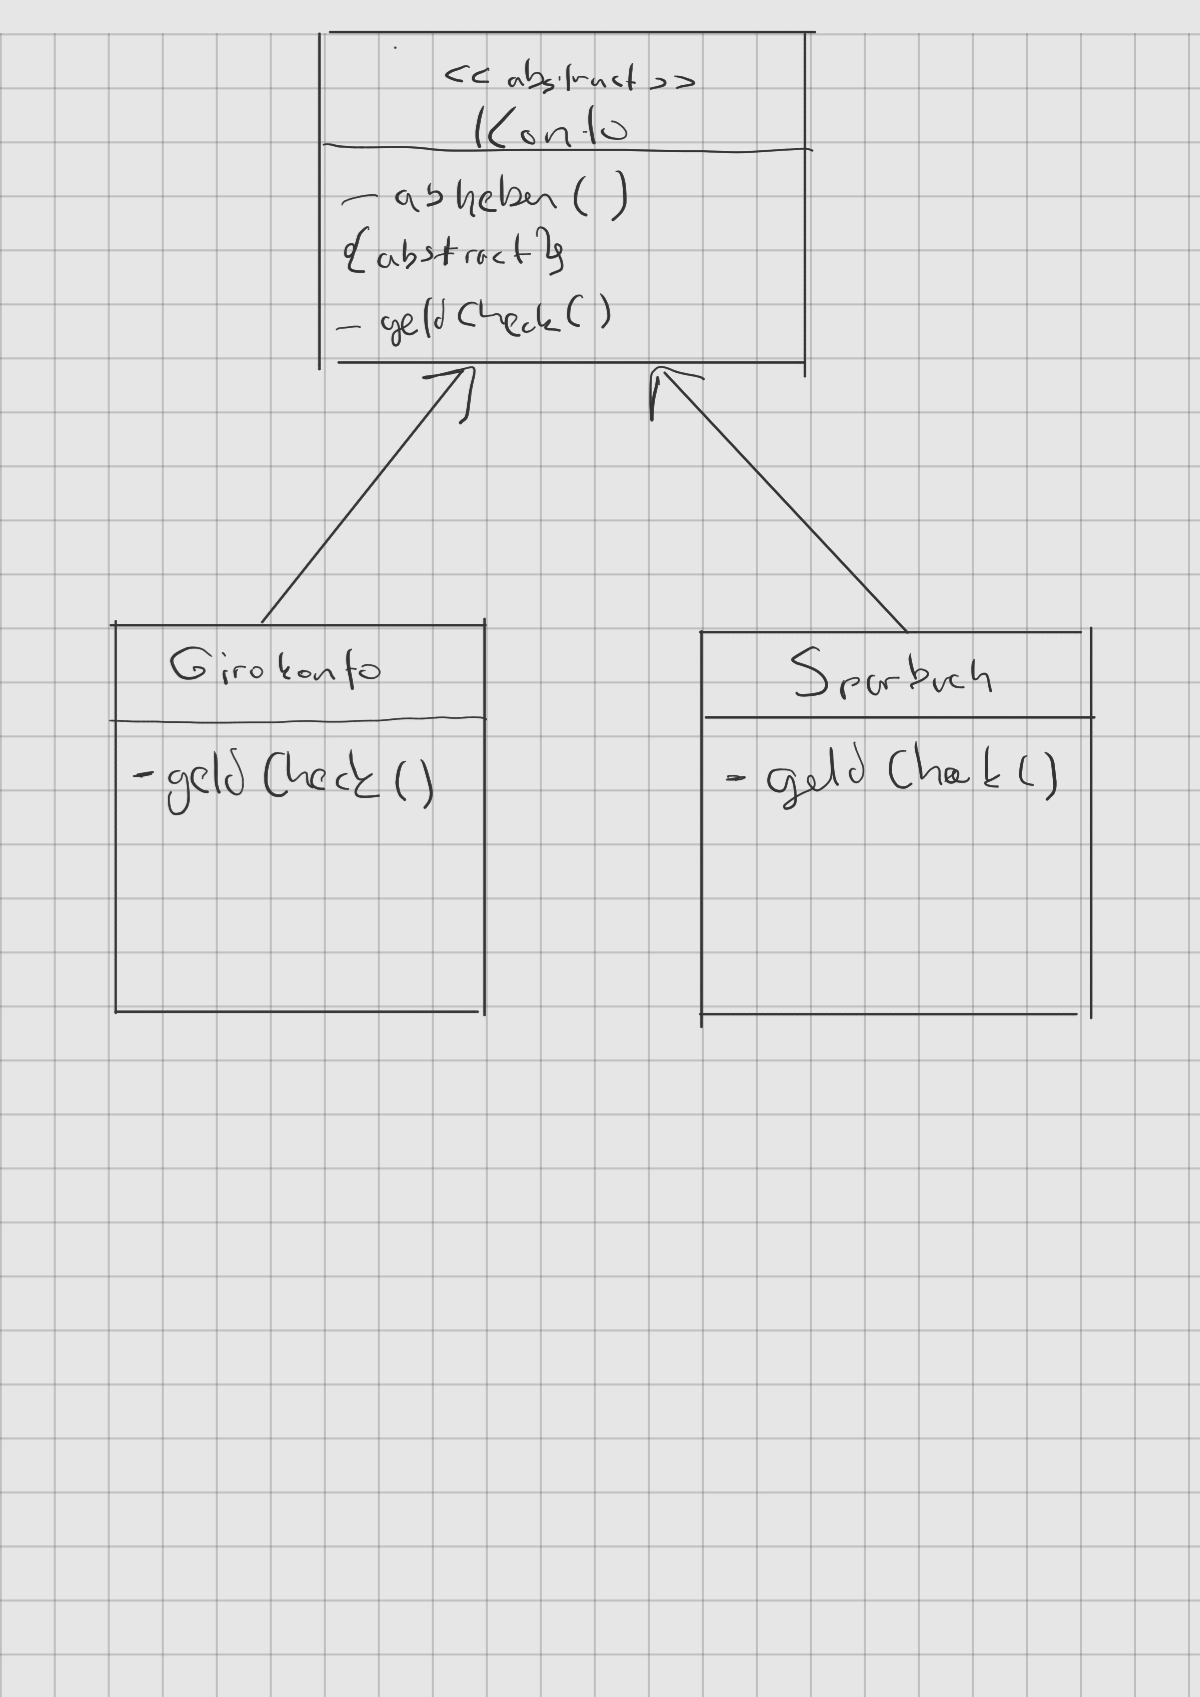 << abstract >>
Konto
- abheben ( )
{abstract}
- geldCheck ( )
Girokonto
- geldCheck ( )
Sparbuch
- geldCheck ( )